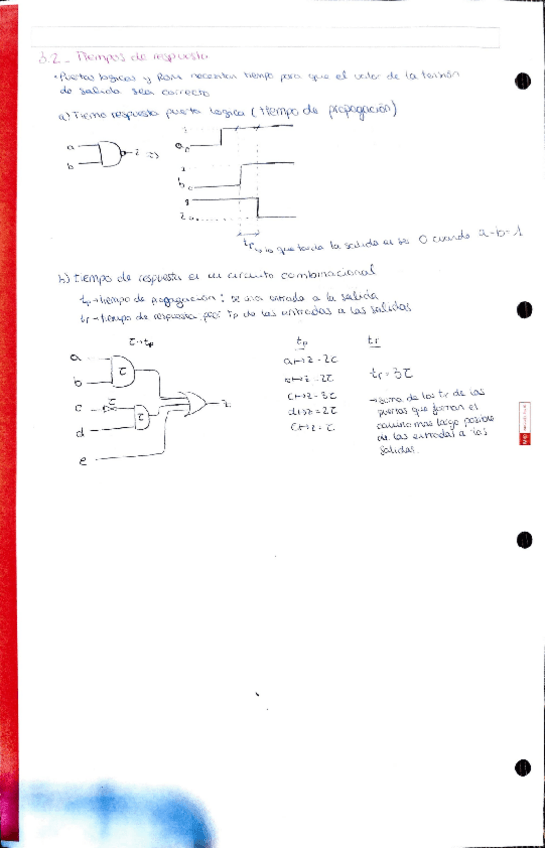 3.2 - Tiempos de respuesta
• Puertas logicas y ROM necesitan tiempo para que el valor de la tensión
de salida sea correcto
a) Tiemo respuesta puerta logica (tiempo de propagación)
a
b
z
1
a 0
1
b 0
1
z 0
tr → lo que tarda la salida en ser 0 cuando a=b=1
b) tiempo de respuesta en un circuito combinacional
tp → tiempo de propagación: de una entrada a la salida
tr → tiempo de respuesta tp de las entradas a las salidas
τ = tp
a
b
c
d
e
τ
τ
τ
z
tp
a→z = 2τ
→z = 2τ
c→z = 3τ
d→z = 2τ
→z = τ
tr
tr = 3τ
→ suma de los tr de las
puertas que forman el
camino mas largo posible
de las entradas a las
salidas.